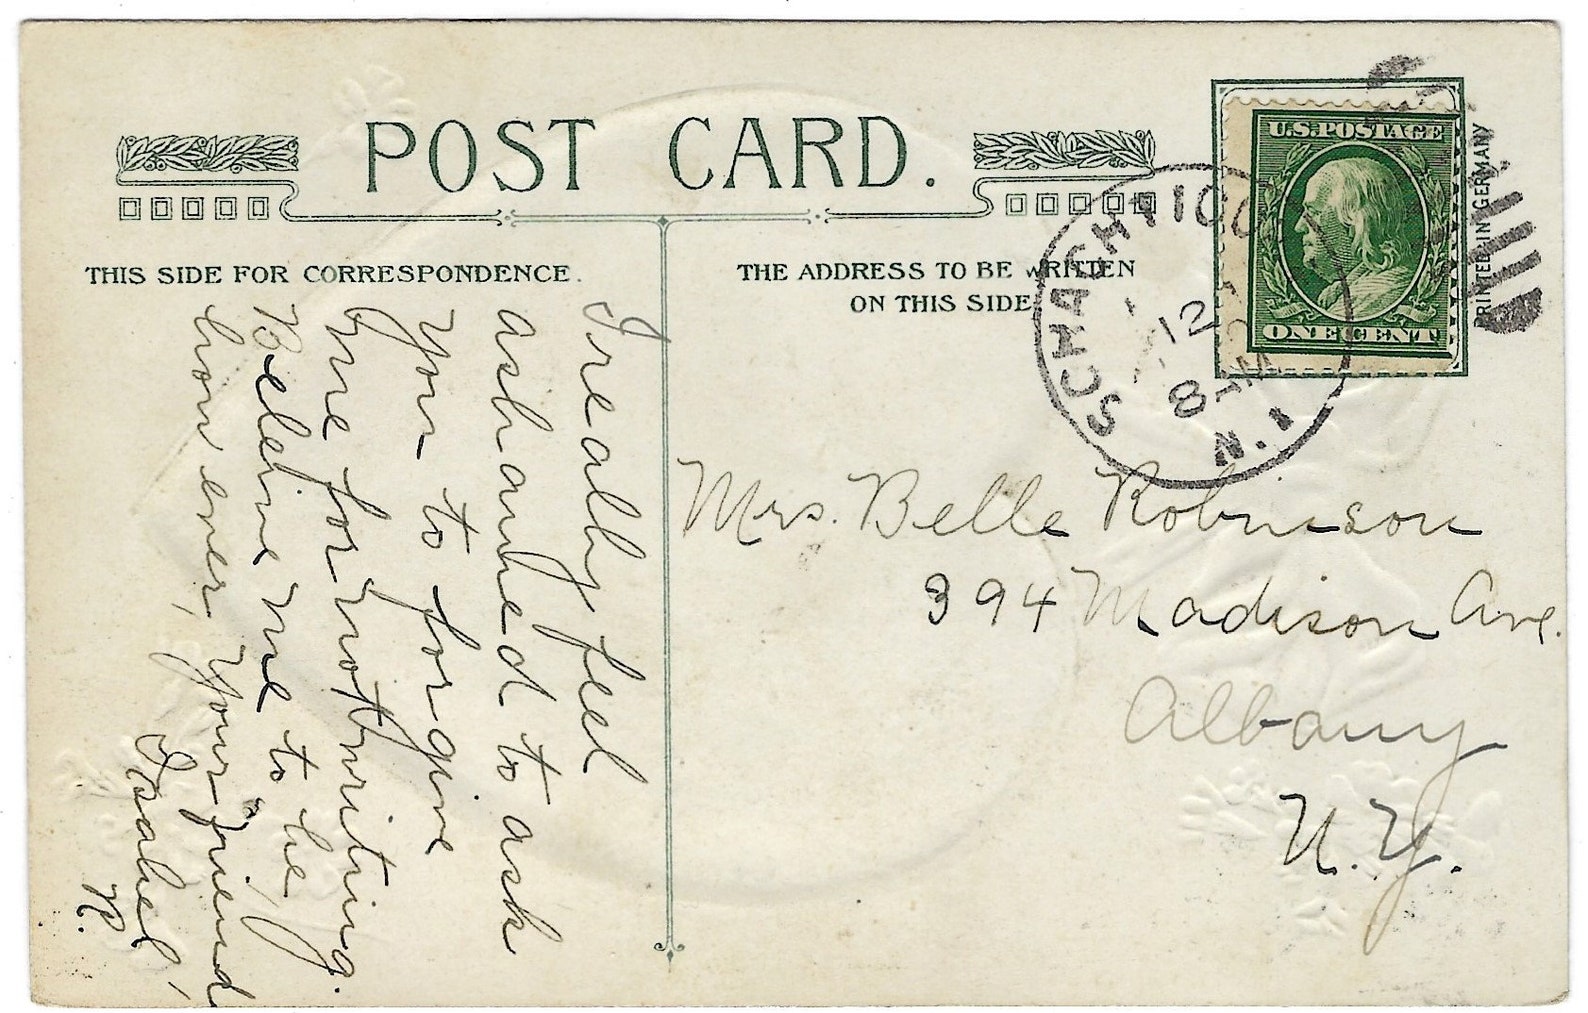 POST CARD.
THIS SIDE FOR CORRESPONDENCE.
THE ADDRESS TO BE WRITTEN
ON THIS SIDE
U.S. POSTAGE
ONE CENT
PRINTED IN GERMANY
SCHAGHTICO
12
8 AM
N.Y.
I really feel
ashamed to ask
you to forgive
me for not writing.
Beleive me to be,
how ever, Your friend,
Isabel
R.
Mrs. Belle Robinson
394 Madison Ave.
Albany
N.Y.